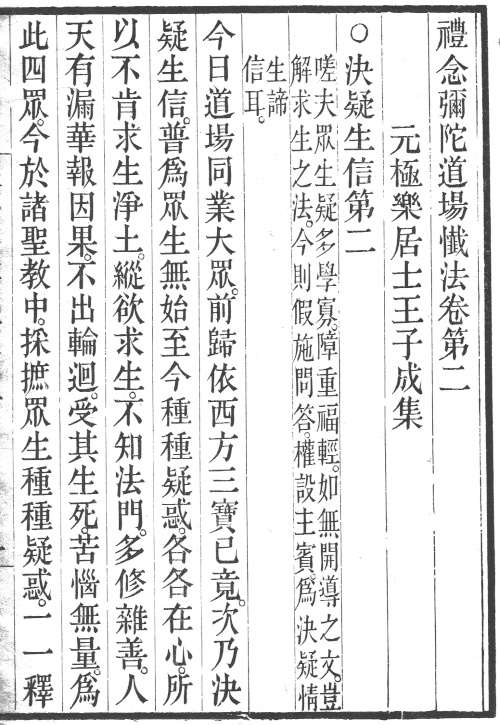 禮念彌陀道場懺法卷第二
元極樂居士王子成集
○決疑生信第二
嗟夫眾生疑多學寡。障重福輕。如無開導之文。豈
解求生之法。今則假施問答。權設主賓。為決疑情
生諦
信耳。
今日道場同業大眾。前歸依西方三寶已竟。次乃決
疑生信。普為眾生無始至今種種疑惑。各各在心。所
以不肯求生淨土。縱欲求生。不知法門。多修雜善。人
天有漏華報因果。不出輪迴。受其生死。苦惱無量。為
此四眾。今於諸聖教中。採摭眾生種種疑惑。一一釋